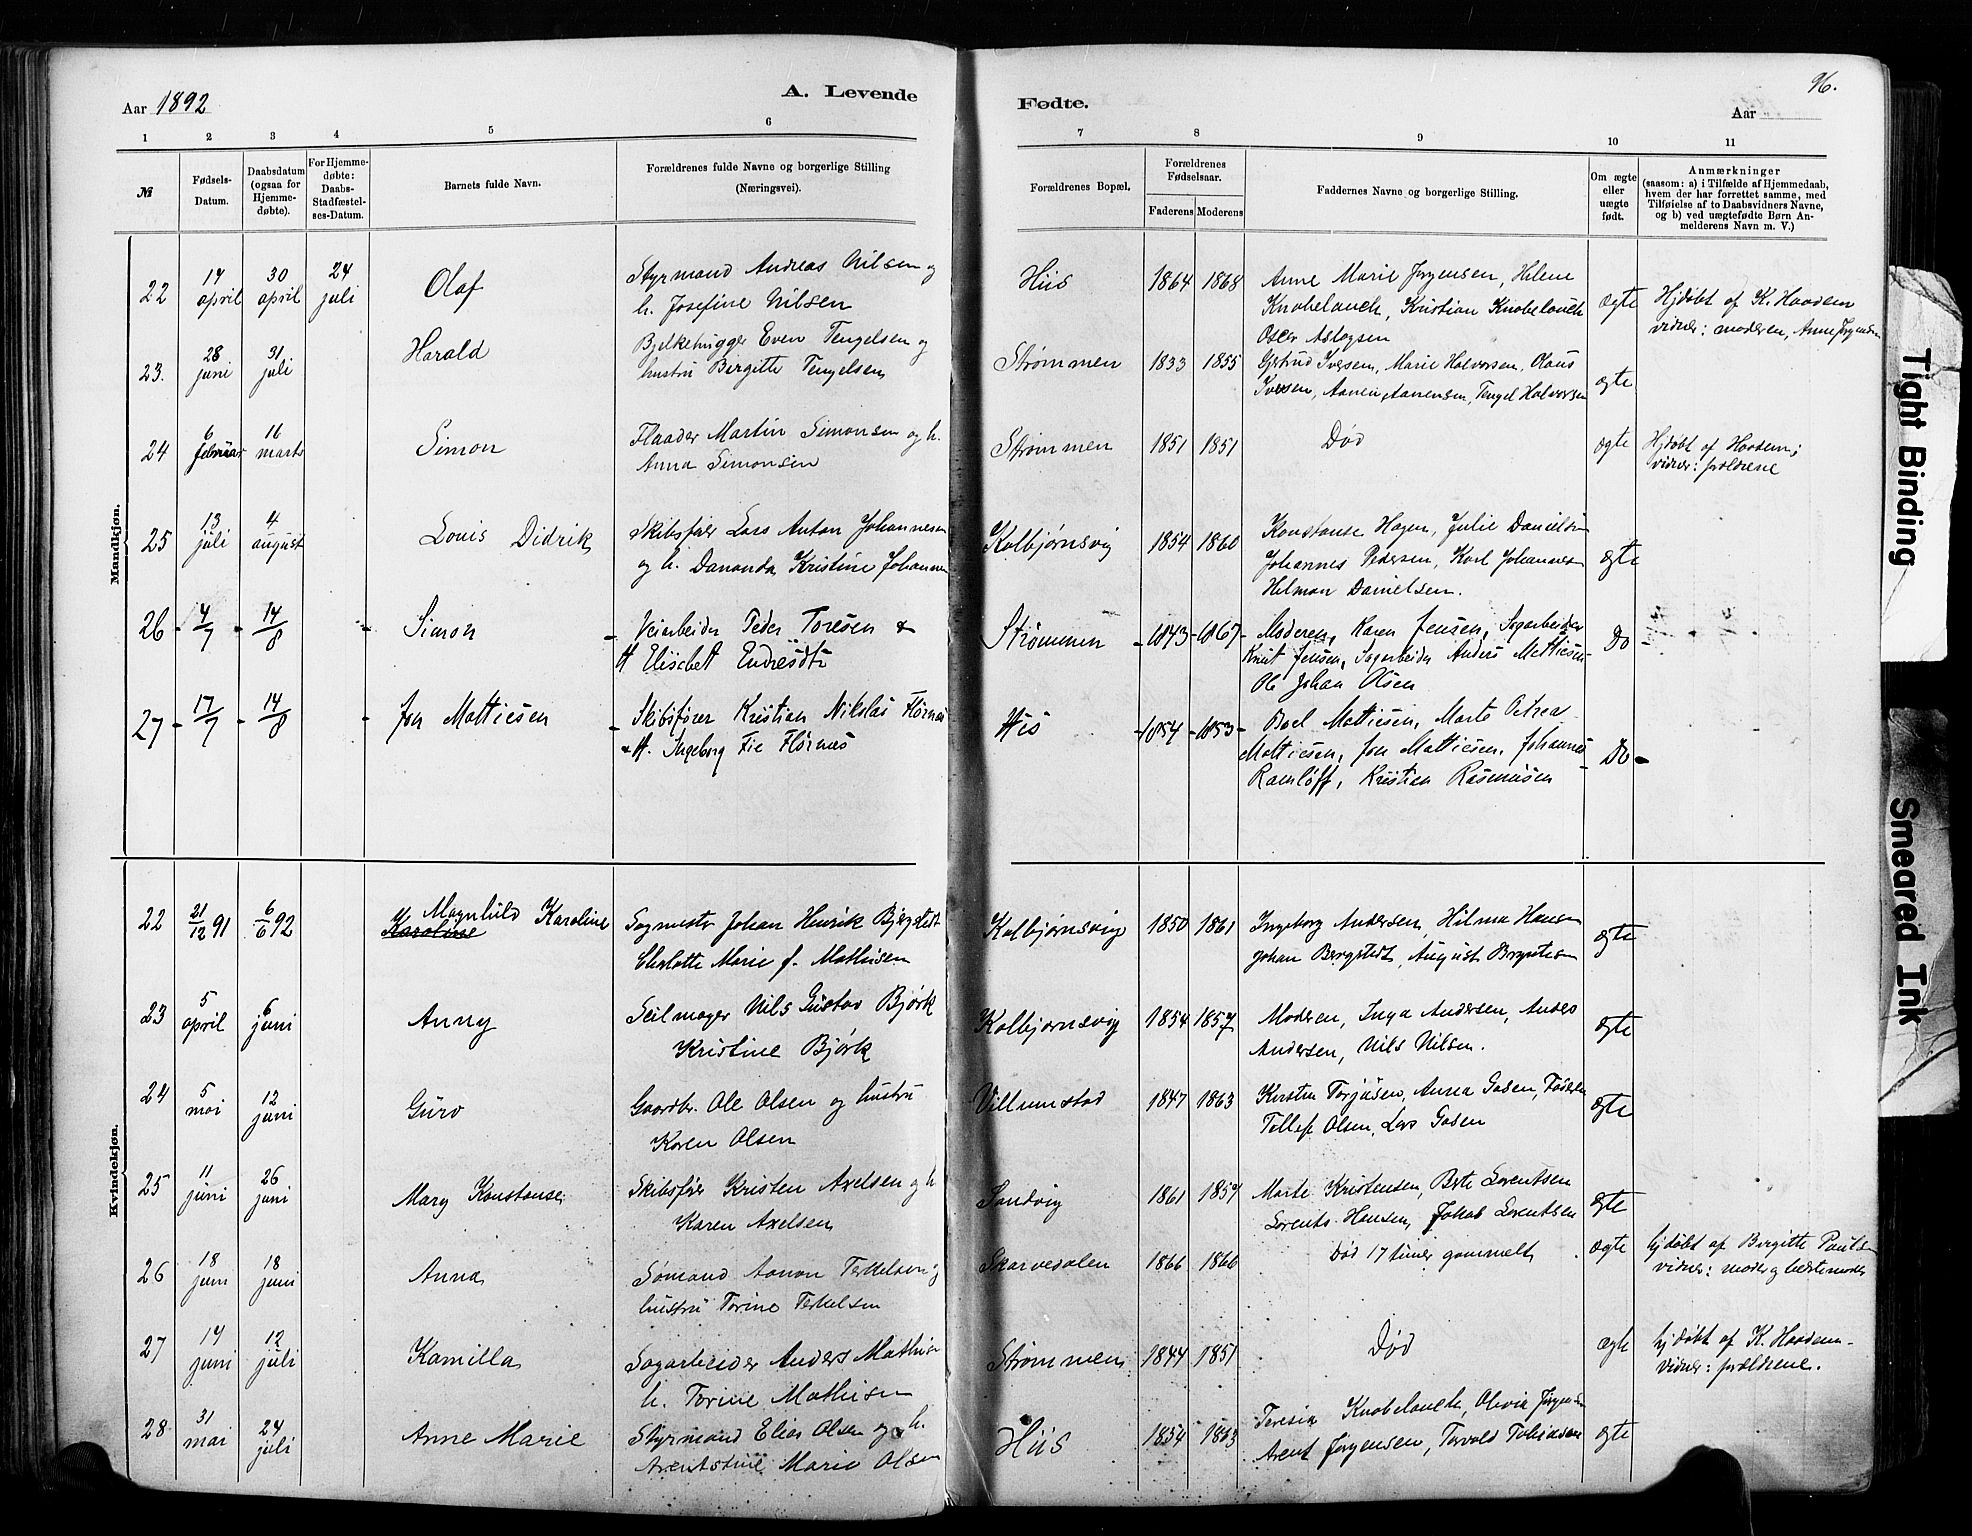 Aar 1892
A. Levende
Fødte.
96.
Aar
1 2 3 4 5 6 7 8 9 10 11
№
Fødsels-
Datum.
Daabsdatum
(ogsaa for
Hjemme-
døbte).
For Hjemme-
døbte:
Daabs-
Stadfæstel-
ses-Datum.
Barnets fulde Navn.
Forældrenes fulde Navne og borgerlige Stilling
(Næringsvei).
Forældrenes Bopæl.
Forældrenes
Fødselsaar.
Faderens Moderens
Faddernes Navne og borgerlige Stilling.
Om ægte
eller
uægte
født.
Anmærkninger
(saasom: a) i Tilfælde af Hjemmedaab,
hvem der har forrettet samme, med
Tilføielse af to Daabsvidners Navne,
og b) ved uægtefødte Børn An-
melderens Navn m. V.)
Mandkjøn.
22
april
30
april
24
juli
Olaf
Styrmand Andreas Nilsen og
h. Josefine Nilsen
Hiis
1864 1868
Anne Marie Jørgensen, Helene
Knobelauch, Kristian Knobelauch
Oscar Aslaysen
ægte
Hjdøbt af K. Haodem
vidner: moderen, Anne Jørgensen
23.
28
juni
31
juli
Harald
Bjelkehugger Even Tengelsen og
hustru Birgitte Tengelsen
Strømmen
1833 1855
Gjertrud Iversen, Marie Halvorsen, Olaus
Iversen, Aanen Aanensen, Tengel Halvorsen
ægte
24
6
februar
16
marts
Simon
Flaader Martin Simonsen og h.
Anna Simonsen
Strømmen
1851 1851
Død
ægte
Hjdøbt af Haodem;
vidner: forældrene
25
13
juli
4
august
Louis Didrik
Skibsfører Lars Anton Johannesen
og h. Dananda Kristine Johannesen
Kolbjørnsvig
1854 1860
Konstanse Hagen, Julie Danielsen
Johannes Pedersen, Karl Johannesen
Helman Danielsen.
ægte
26
4/7
14/8
Simon
Veiarbeider Peder Toresen &
H. Elisebet Endresdtr
Strømmen
1843 1867
Moderen, Karen Jensen, Sagarbeider
Knut Jensen, Sagarbeider Anders Mattiesen
Ole Johan Olsen
Do
27
17/7
14/8
Jon Mattiesen
Skibsfører Kristian Nikolai Flørnes
& H. Ingeborg Fie Flørnes
His
1854 1853
Boel Mattiesen, Marte Petrea
Mattiesen, Jon Mattiesen, Johannes
Ramløff, Kristian Rasmussen
Do
Kvindekjøn.
22
21/12 91
6/6 92
Magnhild Karoline
Karoline
Sagmester Johan Henrik Bjergstedt
Charlotte Marie f. Mathisen
Kolbjørnsvig
1850 1861
Ingeborg Andersen, Hilma Hansen
Johan Bergstedt, August
ægte
23
5
april
6
juni
Anny
Seilmager Nils Gustav Bjørk
Kristine Bjørk
Kolbjørnsvig
1854 1857
Moderen, Inga Andersen, Anders
Andersen, Nils Nilsen.
ægte
24
5
mai
12
juni
Guro
Gaardbr. Ole Olsen og hustru
Karen Olsen
Villumstad
1847 1863
Kirsten Torjusen, Anna Gasen, Faderen
Tellef Olsen, Lars Gasen
ægte
25
11
juni
26
juni
Mary Konstanse
Skibsfører Kristen Axelsen og h
Karen Axelsen
Sandvig
1861 1857
Marte Kristensen, Berte Lorentsen
Lorents Hansen, Jakob Lorentsen
ægte
26
18
juni
18
juni
Anna
Sømand Aanon Terkelsen og
hustru Torine Terkelsen
Skarvedalen
1866 1860
Død 17 timer gammelt
ægte
hjdøbt af Birgitte Paulsen
vidner: moder og bedstemoder
27
juni
12
juli
Kamilla
Sagarbeider Anders Mathisen
h. Torine Mathisen
Strømmen
1844 1851
Død
ægte
hjdøbt af K. Haodem
vidner: forældrene.
28
31
mai
24
juli
Anne Marie
Styrmand Elias Olsen og h.
Arentstine Marie Olsen
Hiis
1854 1863
Teresia Knobelauch, Olivia Jørgensen
Arent Jørgensen, Torvald Tobiassen
ægte
Tight Binding
Smeared Ink